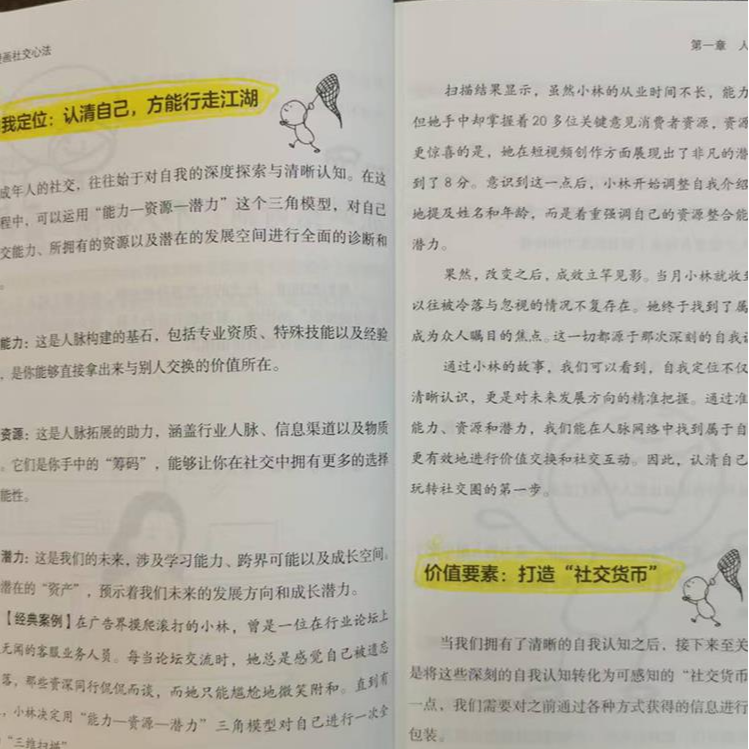 画社交心法
我定位：认清自己，方能行走江湖
成年人的社交，往往始于对自我的深度探索与清晰认知。在这
程中，可以运用“能力—资源—潜力”这个三角模型，对自己
交能力、所拥有的资源以及潜在的发展空间进行全面的诊断和
。
能力：这是人脉构建的基石，包括专业资质、特殊技能以及经验
，是你能够直接拿出来与别人交换的价值所在。
资源：这是人脉拓展的助力，涵盖行业人脉、信息渠道以及物质
。它们是你手中的“筹码”，能够让你在社交中拥有更多的选择
能性。
潜力：这是我们的未来，涉及学习能力、跨界可能以及成长空间。
潜在的“资产”，预示着我们未来的发展方向和成长潜力。
【经典案例】在广告界摸爬滚打的小林，曾是一位在行业论坛上
无闻的客服业务人员。每当论坛交流时，她总是感觉自己被遗忘
落，那些资深同行侃侃而谈，而她只能尴尬地微笑附和。直到有
，小林决定用“能力—资源—潜力”三角模型对自己进行一次全
“三维扫描”
第一章 人
扫描结果显示，虽然小林的从业时间不长，能力
但她手中却掌握着20多位关键意见消费者资源，资源
更惊喜的是，她在短视频创作方面展现出了非凡的潜
到了8分。意识到这一点后，小林开始调整自我介绍
地提及姓名和年龄，而是着重强调自己的资源整合能
潜力。
果然，改变之后，成效立竿见影。当月小林就收到
以往被冷落与忽视的情况不复存在。她终于找到了属
成为众人瞩目的焦点。这一切都源于那次深刻的自我
通过小林的故事，我们可以看到，自我定位不仅
清晰认识，更是对未来发展方向的精准把握。通过准
能力、资源和潜力，我们能在人脉网络中找到属于自
更有效地进行价值交换和社交互动。因此，认清自己
玩转社交圈的第一步。
价值要素：打造“社交货币”
当我们拥有了清晰的自我认知之后，接下来至关
是将这些深刻的自我认知转化为可感知的“社交货币
一点，我们需要对之前通过各种方式获得的信息进行
包装。